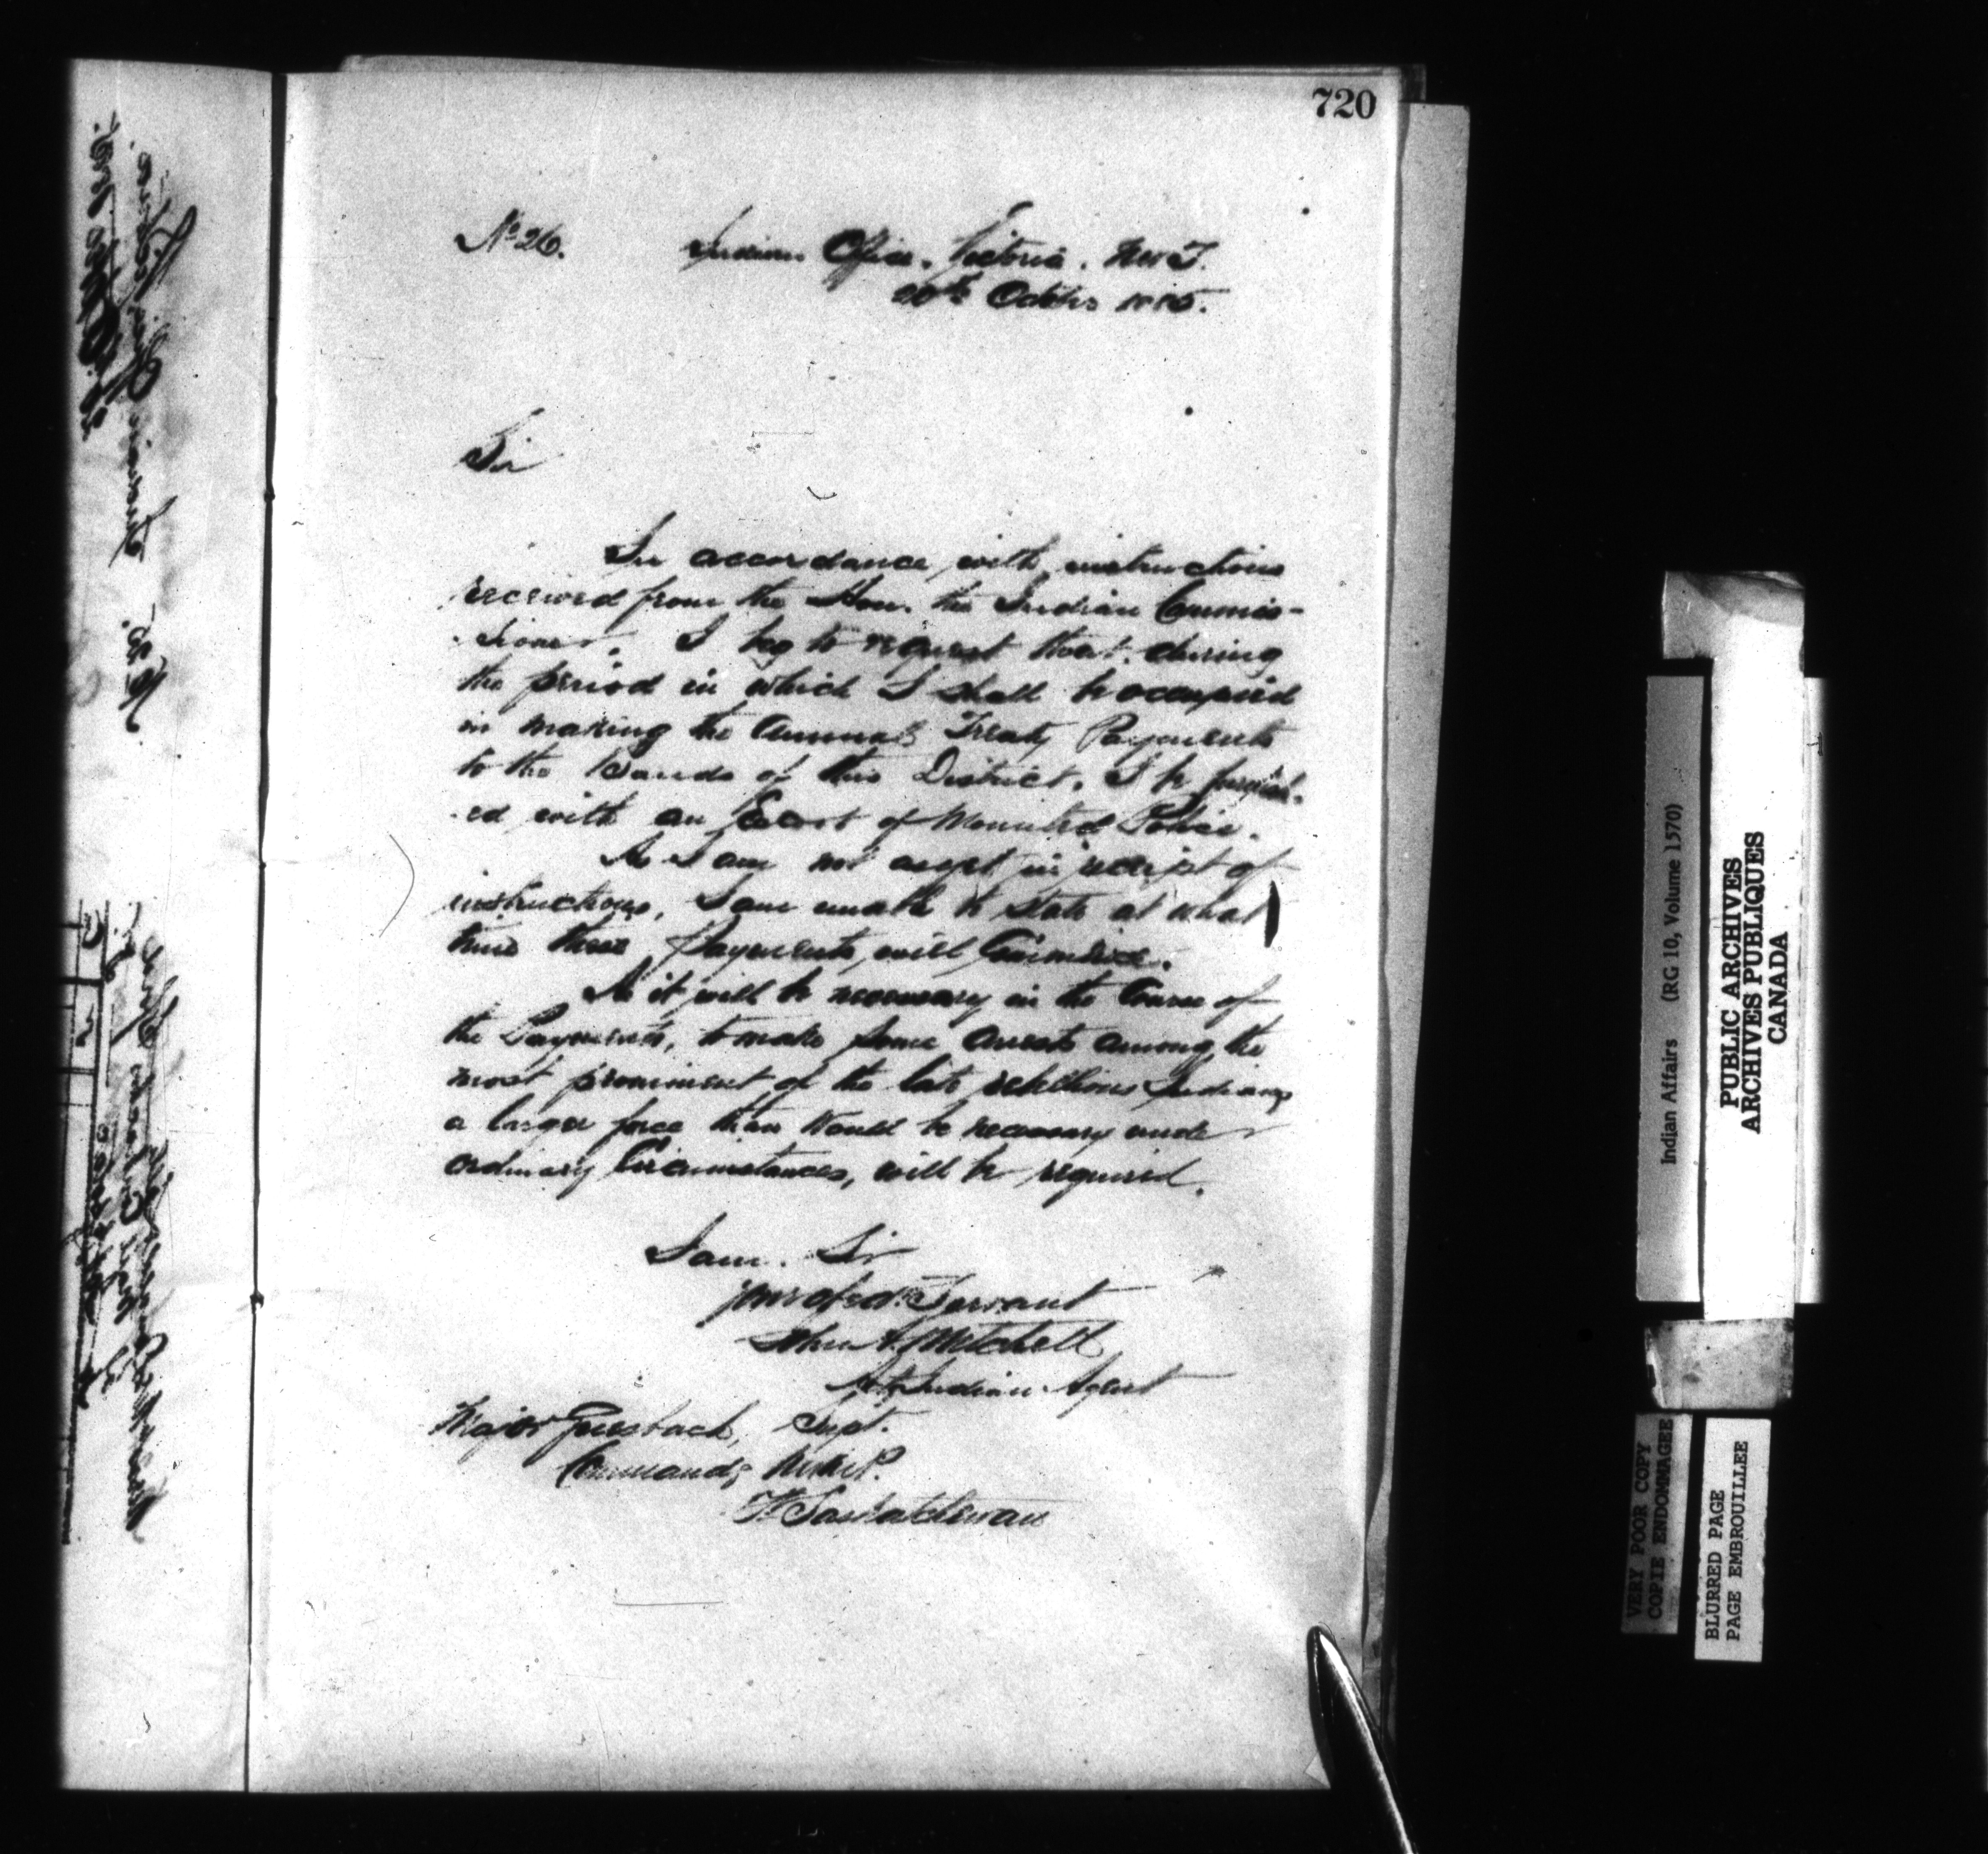 720
No 26. Indian Office. Victoria. N.W.T.
20th October 1885.
Sir
In accordance with instructions
received from the Hon. the Indian Commis-
sioner. I beg to request that, during
the period in which I shall be occupied
in making the Annual Treaty Payments
to the Bands of this District, I be furnish-
ed with an Escort of Mounted Police.
As I am not as yet in receipt of
instructions, I am unable to state at what
time these Payments, will Commence.
As it will be necessary in the Course of
the Payments, to make some arrests among the
most prominent of the late rebellious Indians
a larger force than would be necessary under
ordinary Circumstances, will be required.
I am. Sir
your obedt. Servant
John A. Mitchell
Actg Indian Agent
Major Griesbach, Supt.
Commandg N.W.M.P.
Ft Saskatchewan
Indian Affairs (RG 10, Volume 1570)
PUBLIC ARCHIVES
ARCHIVES PUBLIQUES
CANADA
VERY POOR COPY
COPIE ENDOMMAGEE
BLURRED PAGE
PAGE EMBROUILLEE